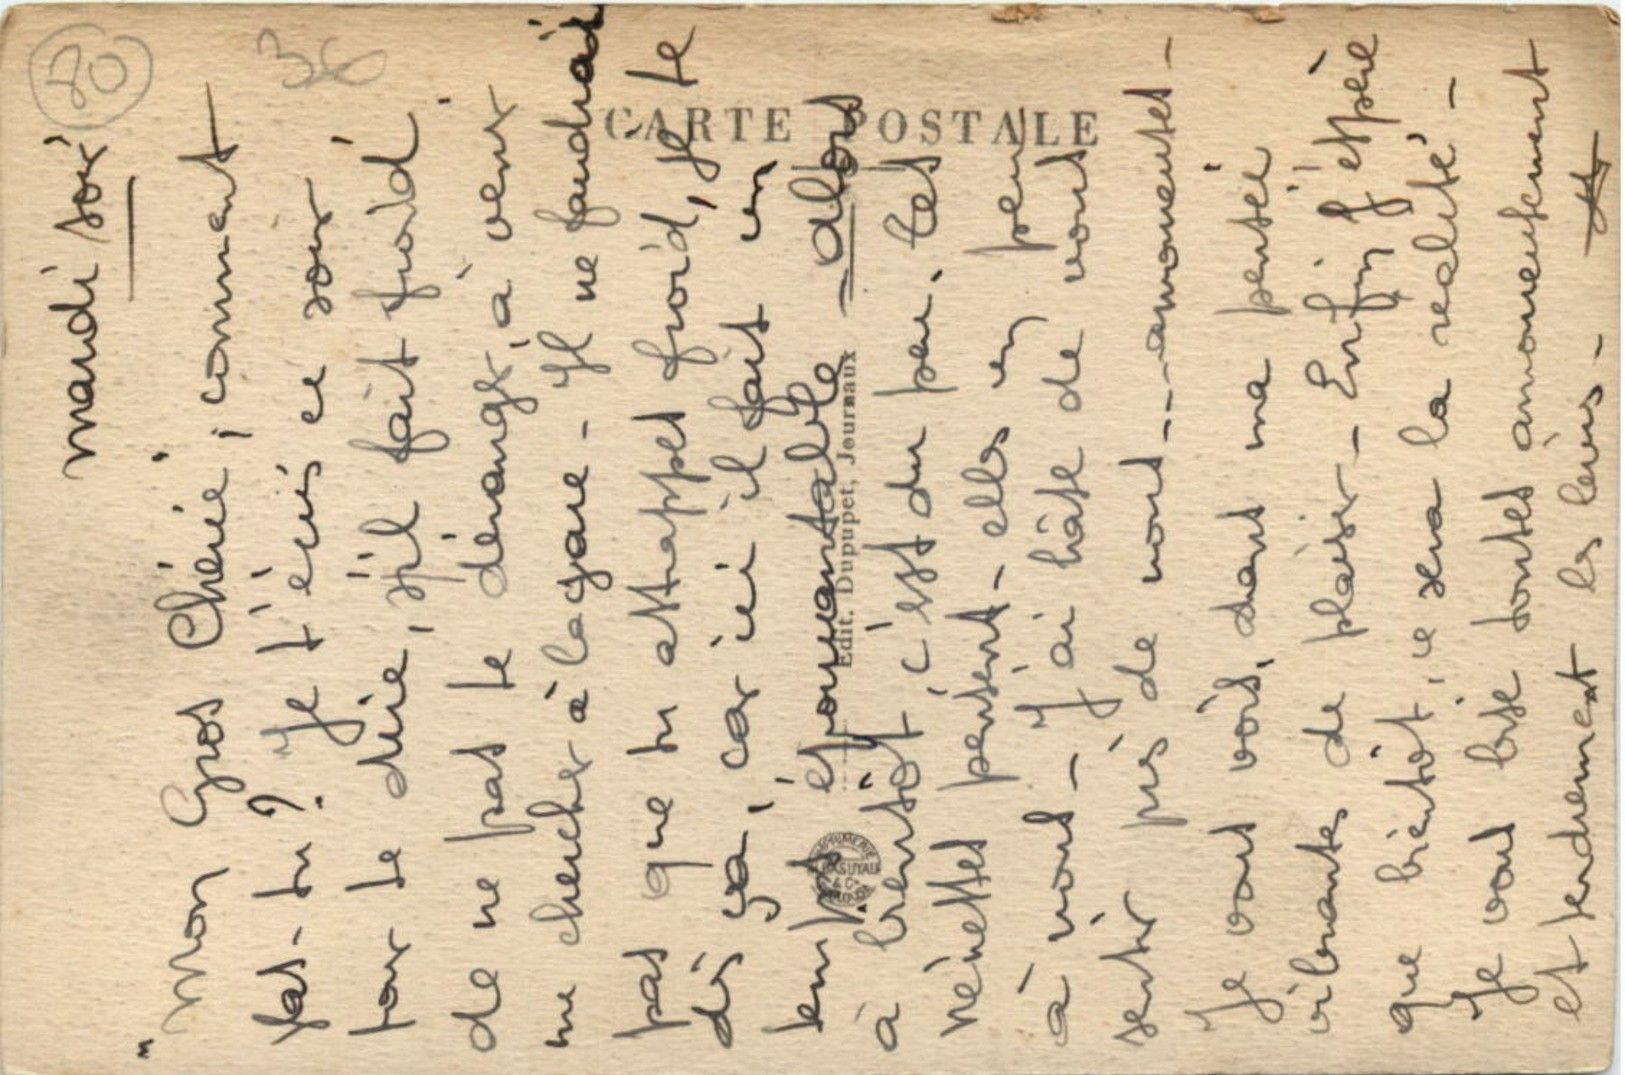 mardi soir
"Mon Gros Chéri, comment
vas-tu? Je t'écris ce soir
pour te dire, s'il fait froid
de ne pas te déranger, à venir
me chercher à la gare - Il ne faudrait
pas que tu attrappes froid, je te
dis ça, car ici il fait un
temps épouvantable - alors
à bientôt, c'est du peu. Les
nénettes pensent-elles un peu
à nous - J'ai hâte de vous
sentir près de nous -- amoureuses -
Je vous vois, dans ma pensée
vibrantes de plaisir - Enfin j'espère
que bientôt, ce sera la réalité -
Je vous bise toutes amoureusement
et tendrement les lèvres -
CARTE POSTALE
Edit. Dupupet, Journaux
IMPRIMERIE
80
36